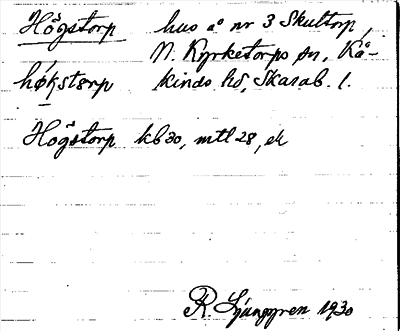 Högstorp hus å nr 3 Skultorp,
N. Kyrketorps sn, Kå-
høkstørp kinds hd, Skarab. l.
Högstorp kb 30, mtl 28, ek
R. Ljunggren 1930